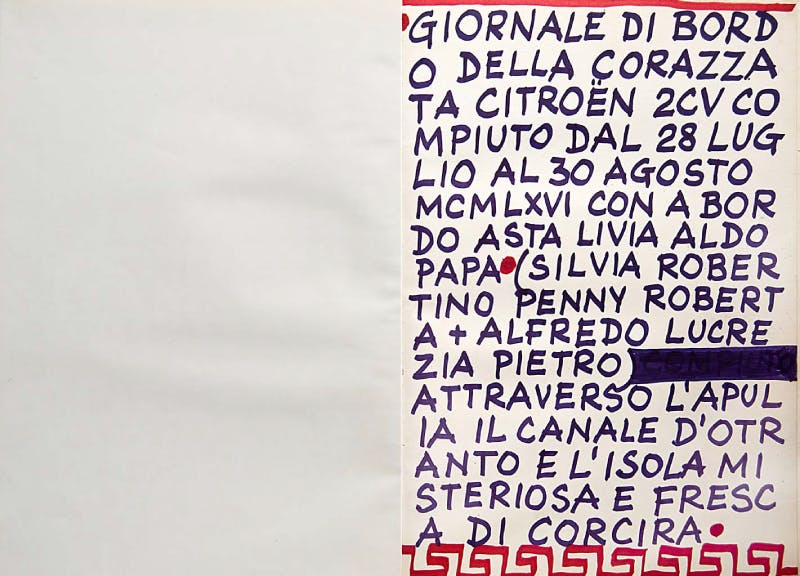 GIORNALE DI BORD
O DELLA CORAZZA
TA CITROËN 2CV CO
MPIUTO DAL 28 LUG
LIO AL 30 AGOSTO
MCMLXVI CON A BOR
DO ASTA LIVIA ALDO
PAPA (SILVIA ROBER
TINO PENNY ROBERT
A + ALFREDO LUCRE
ZIA PIETRO) COMPIUTO
ATTRAVERSO L'APUL
IA IL CANALE D'OTR
ANTO E L'ISOLA MI
STERIOSA E FRESC
A DI CORCIRA